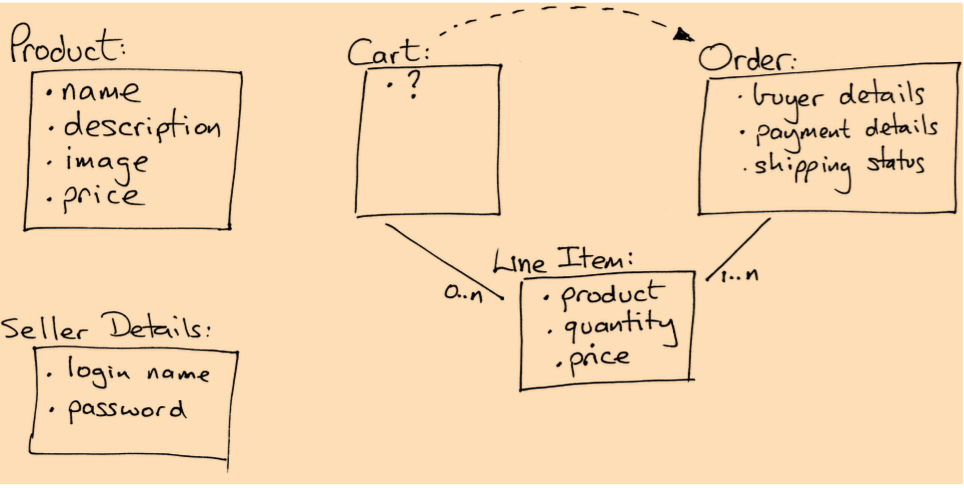 Product:
· name
· description
· image
· price
Cart:
· ?
Order:
· buyer details
· payment details
· shipping status
Line Item:
0..n
1..n
· product
· quantity
· price
Seller Details:
· login name
· password